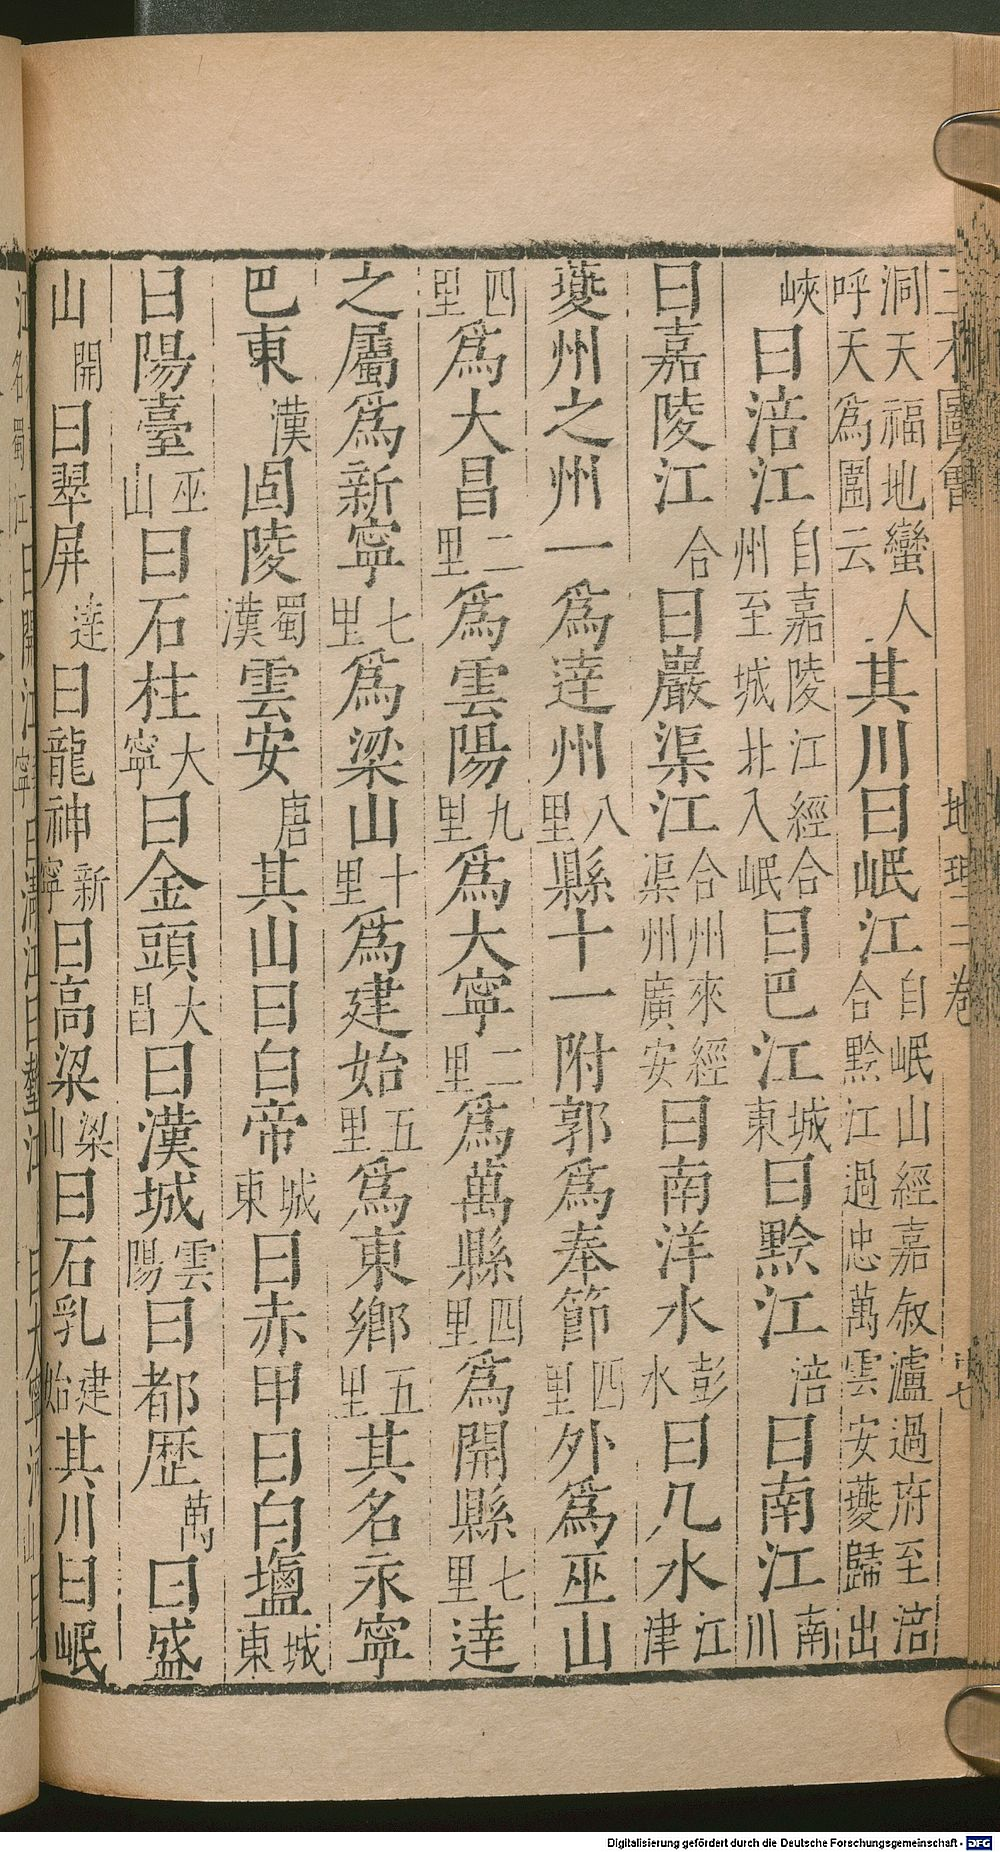 三才圖會 地理三卷
洞天福地蠻人呼天爲圍云其川曰岷江自岷山經嘉叙瀘過府至涪合黔江過忠萬雲安夔歸出
峽曰涪江自嘉陵江經合州至城北入岷曰巴江城東曰黔江涪曰南江南川
曰嘉陵江合曰巖渠江合州來經渠州廣安曰南洋水彭水曰几水江津
夔州之州一爲達州八里縣十一附郭爲奉節四里外爲巫山
四里爲大昌二里爲雲陽九里爲大寧二里爲萬縣四里爲開縣七里達
之屬爲新寧七里爲梁山十里爲建始五里爲東鄉五里其名永寧
巴東漢固陵蜀漢雲安唐其山曰白帝城東曰赤甲曰白鹽城東
曰陽臺巫山曰石柱大寧曰金頭大昌曰漢城雲陽曰都歴萬曰盛
山開曰翠屏達曰龍神新寧曰高梁梁山曰石乳建始其川曰岷
Digitalisierung gefördert durch die Deutsche Forschungsgemeinschaft - DFG